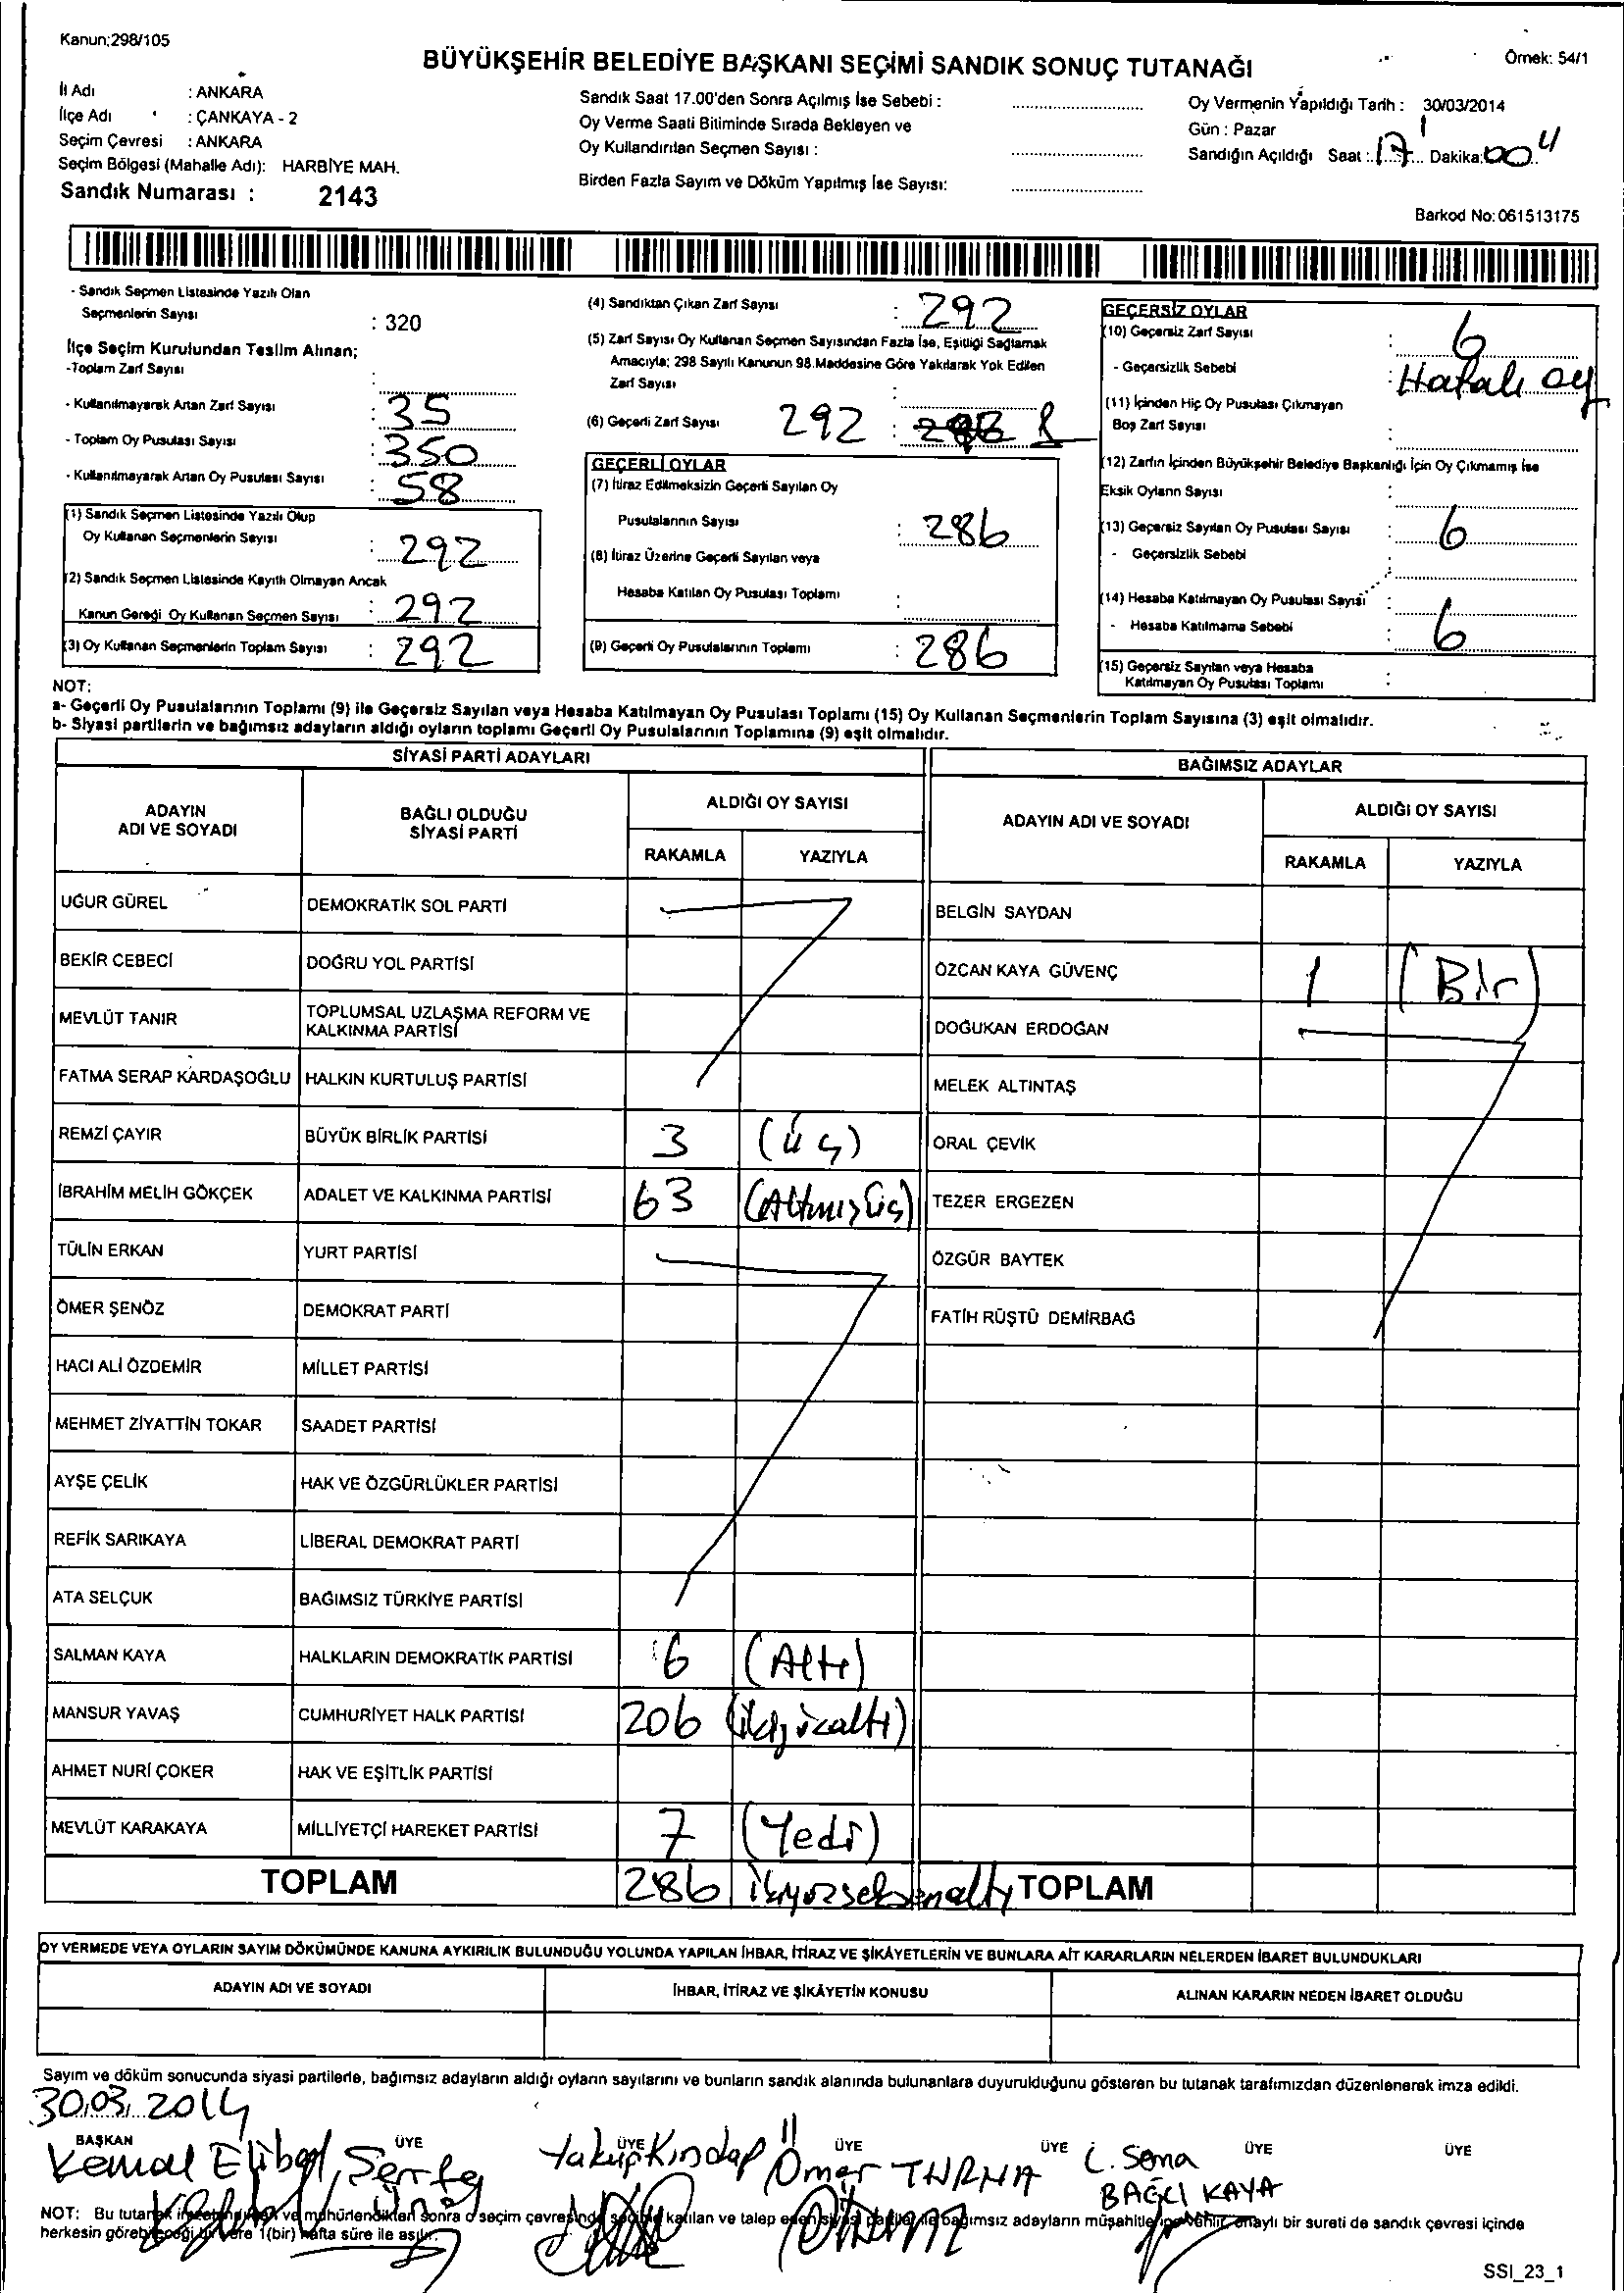 Kanun:298/105
BÜYÜKŞEHİR BELEDİYE BAŞKANI SEÇİMİ SANDIK SONUÇ TUTANAĞI
Örnek: 54/1
İl Adı : ANKARA
İlçe Adı : ÇANKAYA - 2
Seçim Çevresi : ANKARA
Seçim Bölgesi (Mahalle Adı): HARBİYE MAH.
Sandık Numarası : 2143
Sandık Saat 17.00'den Sonra Açılmış İse Sebebi :
Oy Verme Saati Bitiminde Sırada Bekleyen ve
Oy Kullandırılan Seçmen Sayısı :
Birden Fazla Sayım ve Döküm Yapılmış İse Sayısı:
Oy Vermenin Yapıldığı Tarih : 30/03/2014
Gün : Pazar
Sandığın Açıldığı Saat : 17 Dakika: 00
Barkod No: 061513175
- Sandık Seçmen Listesinde Yazılı Olan
Seçmenlerin Sayısı : 320
İlçe Seçim Kurulundan Teslim Alınan;
-Toplam Zarf Sayısı :
- Kullanılmayarak Artan Zarf Sayısı : 35
- Toplam Oy Pusulası Sayısı : 350
- Kullanılmayarak Artan Oy Pusulası Sayısı : 58
(1) Sandık Seçmen Listesinde Yazılı Olup
Oy Kullanan Seçmenlerin Sayısı : 292
(2) Sandık Seçmen Listesinde Kayıtlı Olmayan Ancak
Kanun Gereği Oy Kullanan Seçmen Sayısı : 292
(3) Oy Kullanan Seçmenlerin Toplam Sayısı : 292
(4) Sandıktan Çıkan Zarf Sayısı : 292
(5) Zarf Sayısı Oy Kullanan Seçmen Sayısından Fazla İse, Eşitliği Sağlamak
Amacıyla; 298 Sayılı Kanunun 98.Maddesine Göre Yakılarak Yok Edilen
Zarf Sayısı :
(6) Geçerli Zarf Sayısı 292 : 286
GEÇERLİ OYLAR
(7) İtiraz Edilmeksizin Geçerli Sayılan Oy
Pusulalarının Sayısı : 286
(8) İtiraz Üzerine Geçerli Sayılan veya
Hesaba Katılan Oy Pusulası Toplamı :
(9) Geçerli Oy Pusulalarının Toplamı : 286
GEÇERSİZ OYLAR
(10) Geçersiz Zarf Sayısı : 6
- Geçersizlik Sebebi : Hatalı oy
(11) İçinden Hiç Oy Pusulası Çıkmayan
Boş Zarf Sayısı :
(12) Zarfın İçinden Büyükşehir Belediye Başkanlığı İçin Oy Çıkmamış İse
Eksik Oyların Sayısı :
(13) Geçersiz Sayılan Oy Pusulası Sayısı : 6
- Geçersizlik Sebebi
(14) Hesaba Katılmayan Oy Pusulası Sayısı :
- Hesaba Katılmama Sebebi : 6
(15) Geçersiz Sayılan veya Hesaba
Katılmayan Oy Pusulası Toplamı :
NOT:
a- Geçerli Oy Pusulalarının Toplamı (9) ile Geçersiz Sayılan veya Hesaba Katılmayan Oy Pusulası Toplamı (15) Oy Kullanan Seçmenlerin Toplam Sayısına (3) eşit olmalıdır.
b- Siyasi partilerin ve bağımsız adayların aldığı oyların toplamı Geçerli Oy Pusulalarının Toplamına (9) eşit olmalıdır.
SİYASİ PARTİ ADAYLARI
ADAYIN ADI VE SOYADI
BAĞLI OLDUĞU SİYASİ PARTİ
ALDIĞI OY SAYISI
RAKAMLA YAZIYLA
UĞUR GÜREL DEMOKRATİK SOL PARTİ
BEKİR CEBECİ DOĞRU YOL PARTİSİ
MEVLÜT TANIR TOPLUMSAL UZLAŞMA REFORM VE KALKINMA PARTİSİ
FATMA SERAP KARDAŞOĞLU HALKIN KURTULUŞ PARTİSİ
REMZİ ÇAYIR BÜYÜK BİRLİK PARTİSİ 3 (üç)
İBRAHİM MELİH GÖKÇEK ADALET VE KALKINMA PARTİSİ 63 (Altmışüç)
TÜLİN ERKAN YURT PARTİSİ
ÖMER ŞENÖZ DEMOKRAT PARTİ
HACI ALİ ÖZDEMİR MİLLET PARTİSİ
MEHMET ZİYATTİN TOKAR SAADET PARTİSİ
AYŞE ÇELİK HAK VE ÖZGÜRLÜKLER PARTİSİ
REFİK SARIKAYA LİBERAL DEMOKRAT PARTİ
ATA SELÇUK BAĞIMSIZ TÜRKİYE PARTİSİ
SALMAN KAYA HALKLARIN DEMOKRATİK PARTİSİ 6 (Altı)
MANSUR YAVAŞ CUMHURİYET HALK PARTİSİ 206 (ikiyüzaltı)
AHMET NURİ ÇOKER HAK VE EŞİTLİK PARTİSİ
MEVLÜT KARAKAYA MİLLİYETÇİ HAREKET PARTİSİ 7 (Yedi)
TOPLAM 286 ikiyüzseksenaltı
BAĞIMSIZ ADAYLAR
ADAYIN ADI VE SOYADI
ALDIĞI OY SAYISI
RAKAMLA YAZIYLA
BELGİN SAYDAN
ÖZCAN KAYA GÜVENÇ 1 (Bir)
DOĞUKAN ERDOĞAN
MELEK ALTINTAŞ
ORAL ÇEVİK
TEZER ERGEZEN
ÖZGÜR BAYTEK
FATİH RÜŞTÜ DEMİRBAĞ
TOPLAM
OY VERMEDE VEYA OYLARIN SAYIM DÖKÜMÜNDE KANUNA AYKIRILIK BULUNDUĞU YOLUNDA YAPILAN İHBAR, İTİRAZ VE ŞİKÂYETLERİN VE BUNLARA AİT KARARLARIN NELERDEN İBARET BULUNDUKLARI
ADAYIN ADI VE SOYADI
İHBAR, İTİRAZ VE ŞİKÂYETİN KONUSU
ALINAN KARARIN NEDEN İBARET OLDUĞU
Sayım ve döküm sonucunda siyasi partilerle, bağımsız adayların aldığı oyların sayılarını ve bunların sandık alanında bulunanlara duyurulduğunu gösteren bu tutanak tarafımızdan düzenlenerek imza edildi.
30.03.2014
BAŞKAN ÜYE ÜYE ÜYE ÜYE ÜYE ÜYE
Kemal Yakup Kındap Ömer TURNA Sena
BAĞCI KAYA
NOT: Bu tutanak ve mühürlendikten sonra o seçim çevresinde seçime katılan ve talep eden siyasi partiler ile bağımsız adayların müşahitlerine onaylı bir sureti de sandık çevresi içinde
herkesin görebileceği bir yere 1(bir) hafta süre ile asılır.
SSI_23_1